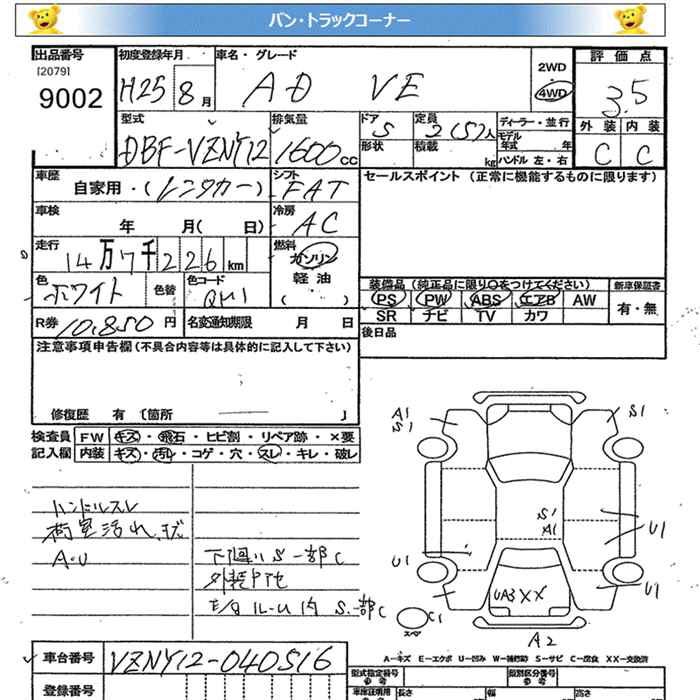 バン・トラックコーナー
出品番号
[2079]
9002
初度登録年月
H25 8 月
車名・グレード
AD VE
2WD
4WD
評価点
3.5
外装 内装
C C
型式
DBF-VZNY12
排気量
1600 cc
ドア 5
形状
定員
2(5)人
積載 kg
ディーラー・並行
モデル年式 年
ハンドル 左・右
車歴
自家用・(レンタカー)
シフト
FAT
セールスポイント (正常に機能するものに限ります)
車検
年 月( 日)
冷房
AC
走行
14万7千226 km
燃料
ガソリン
軽油
( )
色
ホワイト
色替
色コード
QM1
装備品 (純正品に限り○をつけてください)
新車保証書
PS PW ABS エアB AW
SR ナビ TV カワ
有・無
R券 10,850 円
名変通知期限 月 日
後日品
注意事項申告欄 (不具合内容等は具体的に記入して下さい)
修復歴 有 〔箇所 〕
検査員 FW キズ・飛石・ヒビ割・リペア跡・×要
記入欄 内装 キズ・汚レ・コゲ・穴・スレ・キレ・破レ
ハンドルスレ
荷室汚れ、
A・U
下廻りS一部C
S.一部C
A1
S1
S1
S1
A1
U1
U1
U1
UA3 XX
C1
スペア
A2
A－キズ E－エクボ U－凹み W－補修跡 S－サビ C－腐食 XX－交換済
車台番号 VZNY12-040516
登録番号
型式指定番号
参考
類別区分番号
参考
車庫証明用
長さ 幅 高さ